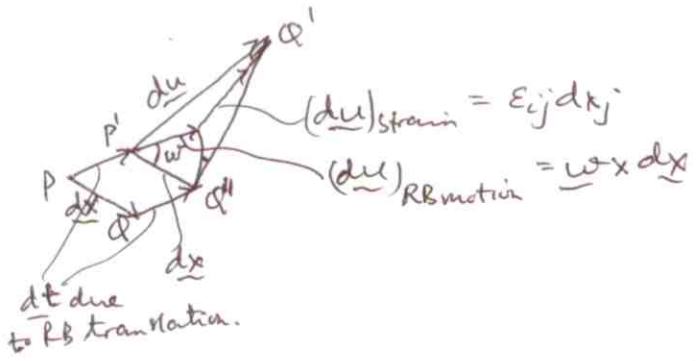 Q'
du
P'
(du)strain = εij dxj
ω
P
(du)RB motion = ω x dx
dx
Q
Q"
dx
dt due
to RB translation.